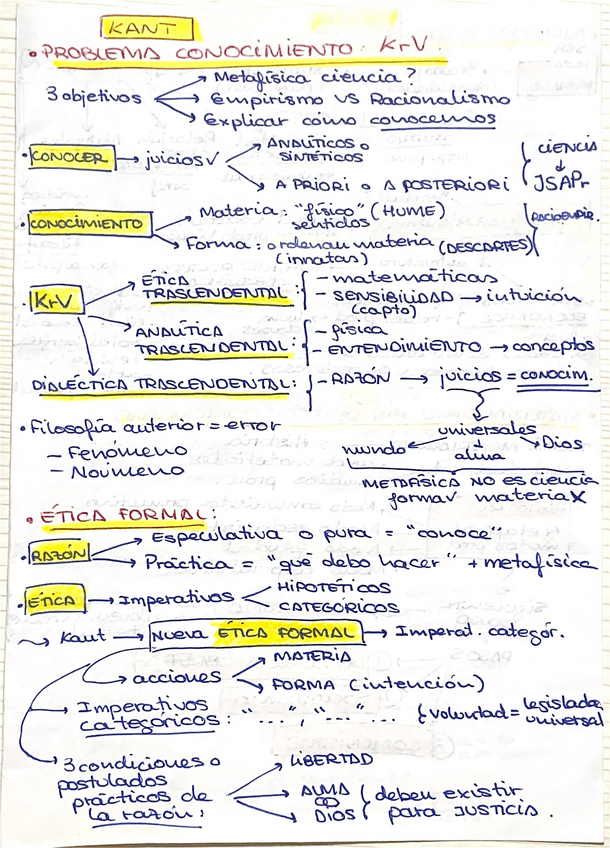 KANT
• PROBLEMA CONOCIMIENTO: KrV.
→ Metafísica ciencia?
3 objetivos → Empirismo VS Racionalismo
→ Explicar cómo conocemos
• CONOCER → juicios √ → ANALÍTICOS o SINTÉTICOS
→ A PRIORI o A POSTERIORI
CIENCIA
↓
JSAPr
• CONOCIMIENTO → Materia: "físico" (HUME)
sentidos
→ Forma: ordenan materia (DESCARTES)
(innatas)
• KrV → ÉTICA
TRASCENDENTAL: - matemáticas
- SENSIBILIDAD → intuición
(capto)
→ ANALÍTICA
TRASCENDENTAL: - física
- ENTENDIMIENTO → conceptos
DIALÉCTICA TRASCENDENTAL: - RAZÓN → juicios = CONOCIM.
• Filosofía anterior = error
- Fenómeno
- Noúmeno
universales
mundo alma Dios
METAFÍSICA NO es ciencia
forma √ materia X
• ÉTICA FORMAL:
• RAZÓN → Especulativa o pura = "conoce"
→ Práctica = "qué debo hacer" + metafísica
• ÉTICA → Imperativos HIPOTÉTICOS
CATEGÓRICOS
Kant → Nueva ÉTICA FORMAL → Imperat. categór.
→ acciones → MATERIA
→ FORMA (intención)
→ Imperativos
categóricos: "....", "...." ... { voluntad = legisladora
universal
→ 3 condiciones o
postulados
prácticos de
la razón:
→ LIBERTAD
→ ALMA
→ DIOS
deben existir
para JUSTICIA.